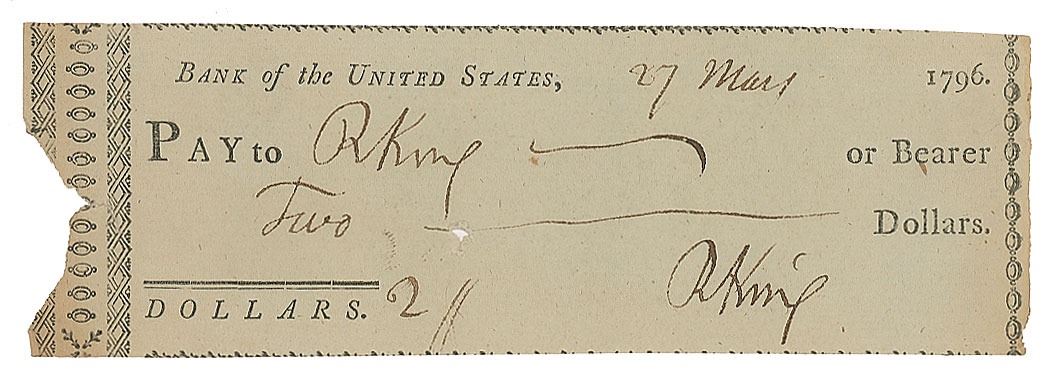 BANK of the UNITED STATES, 27 Mars 1796.
PAY to RKing or Bearer
Two Dollars.
RKing
DOLLARS. 2